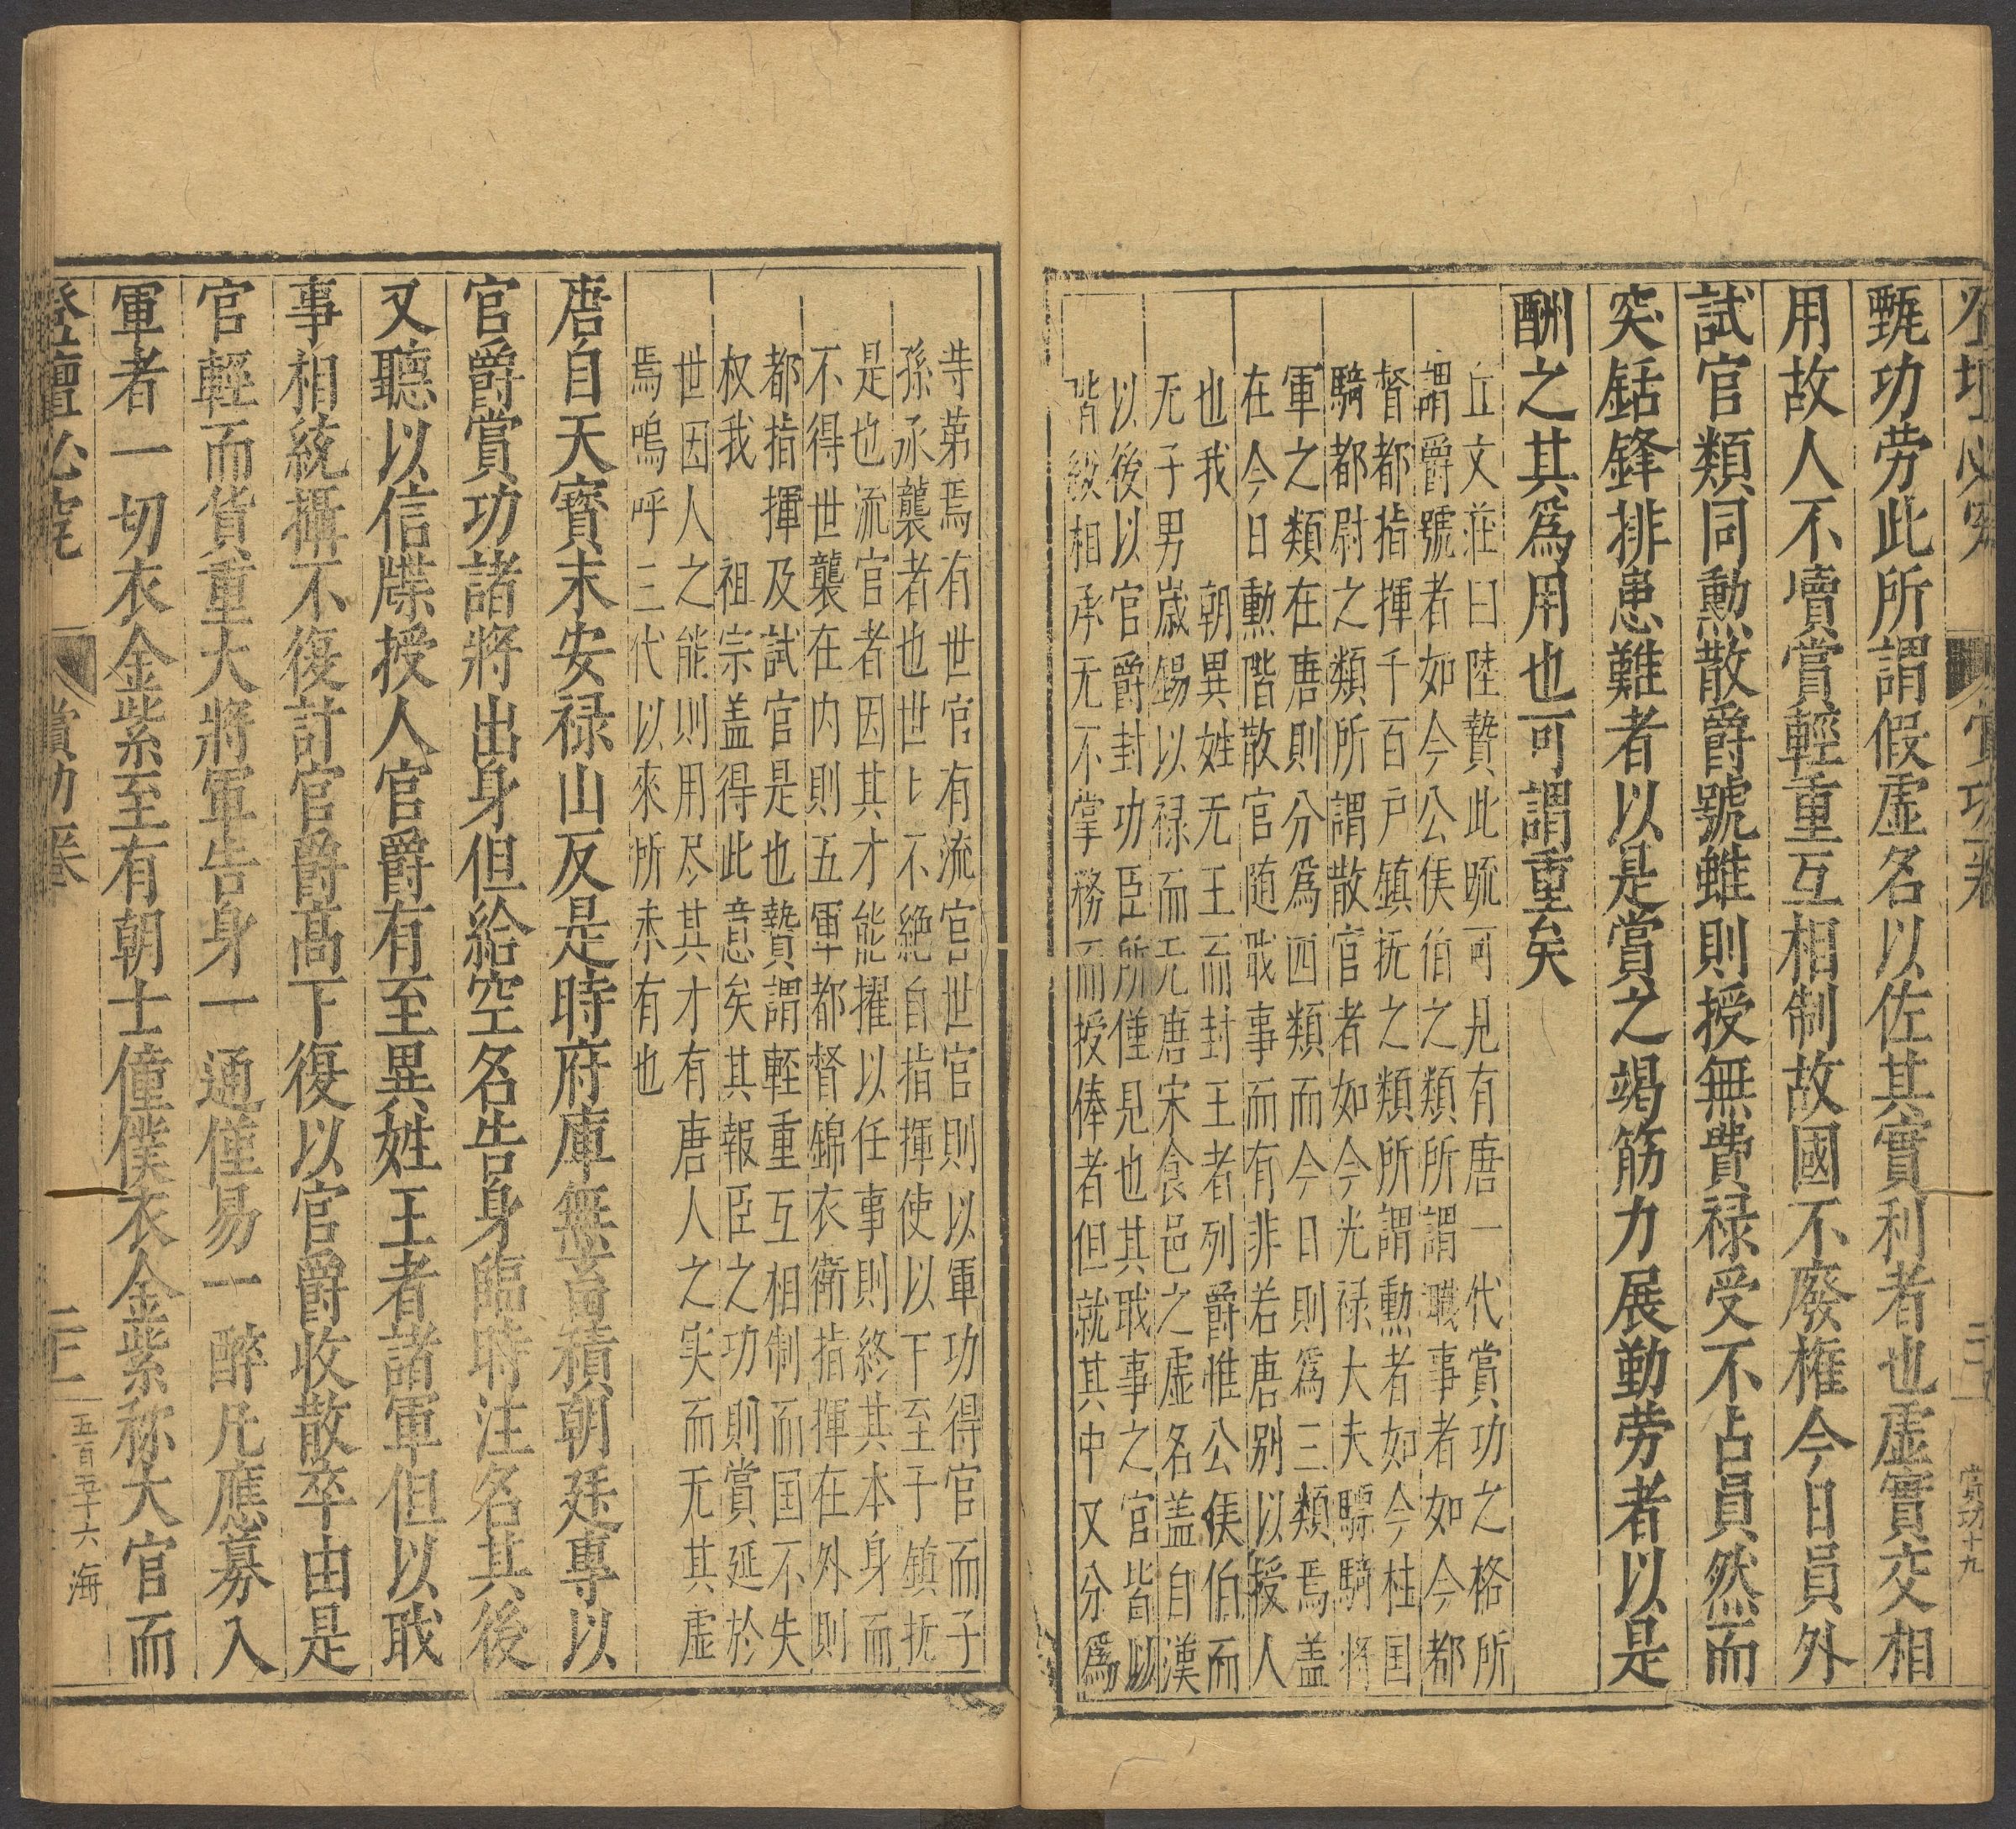 甄功劳此所謂假虛名以佐其實利者也虛實交相
用故人不瀆賞輕重互相制故國不廢權今日員外
試官類同勲散爵號雖則授無費禄受不占員然而
突銛鋒排患難者以是賞之竭筋力展勤劳者以是
酬之其爲用也可謂重矣
丘文莊曰陸贄此疏可見有唐一代賞功之格所
謂爵號者如今公侯伯之類所謂職事者如今都
督都指揮千百户鎮撫之類所謂勲者如今柱国
騎都尉之類所謂散官者如今光禄大夫驃騎將
軍之類在唐則分爲四類而今日則爲三類焉盖
在今日勲階散官随戢事而有非若唐别以授人
也我　朝異姓无王而封王者列爵惟公侯伯而
无子男歳錫以禄而无唐宋食邑之虛名盖自漢
以後以官爵封功臣所僅見也其戢事之官皆以
階級相承无不掌務而授俸者但就其中又分爲
等第焉有世官有流官世官則以軍功得官而子
孫承襲者也世〻不絶自指揮使以下至于鎮抚
是也流官者因其才能擢以任事則終其本身而
不得世襲在内則五軍都督錦衣衛指揮在外則
都指揮及試官是也贄謂輊重互相制而国不失
权我　祖宗盖得此意矣其報臣之功則賞延於
世因人之能則用尽其才有唐人之实而无其虛
焉嗚呼三代以來所未有也
唐自天寳末安禄山反是時府庫無蓄積朝廷專以
官爵賞功諸將出身但給空名告身臨時注名其後
又聽以信牒授人官爵有至異姓王者諸軍但以戢
事相統攝不復計官爵高下復以官爵收散卒由是
官輕而貨重大將軍告身一通僅易一醉凡應募入
軍者一切衣金紫至有朝士僮僕衣金紫称大官而
登壇必究　賞功卷　五百五十六　海